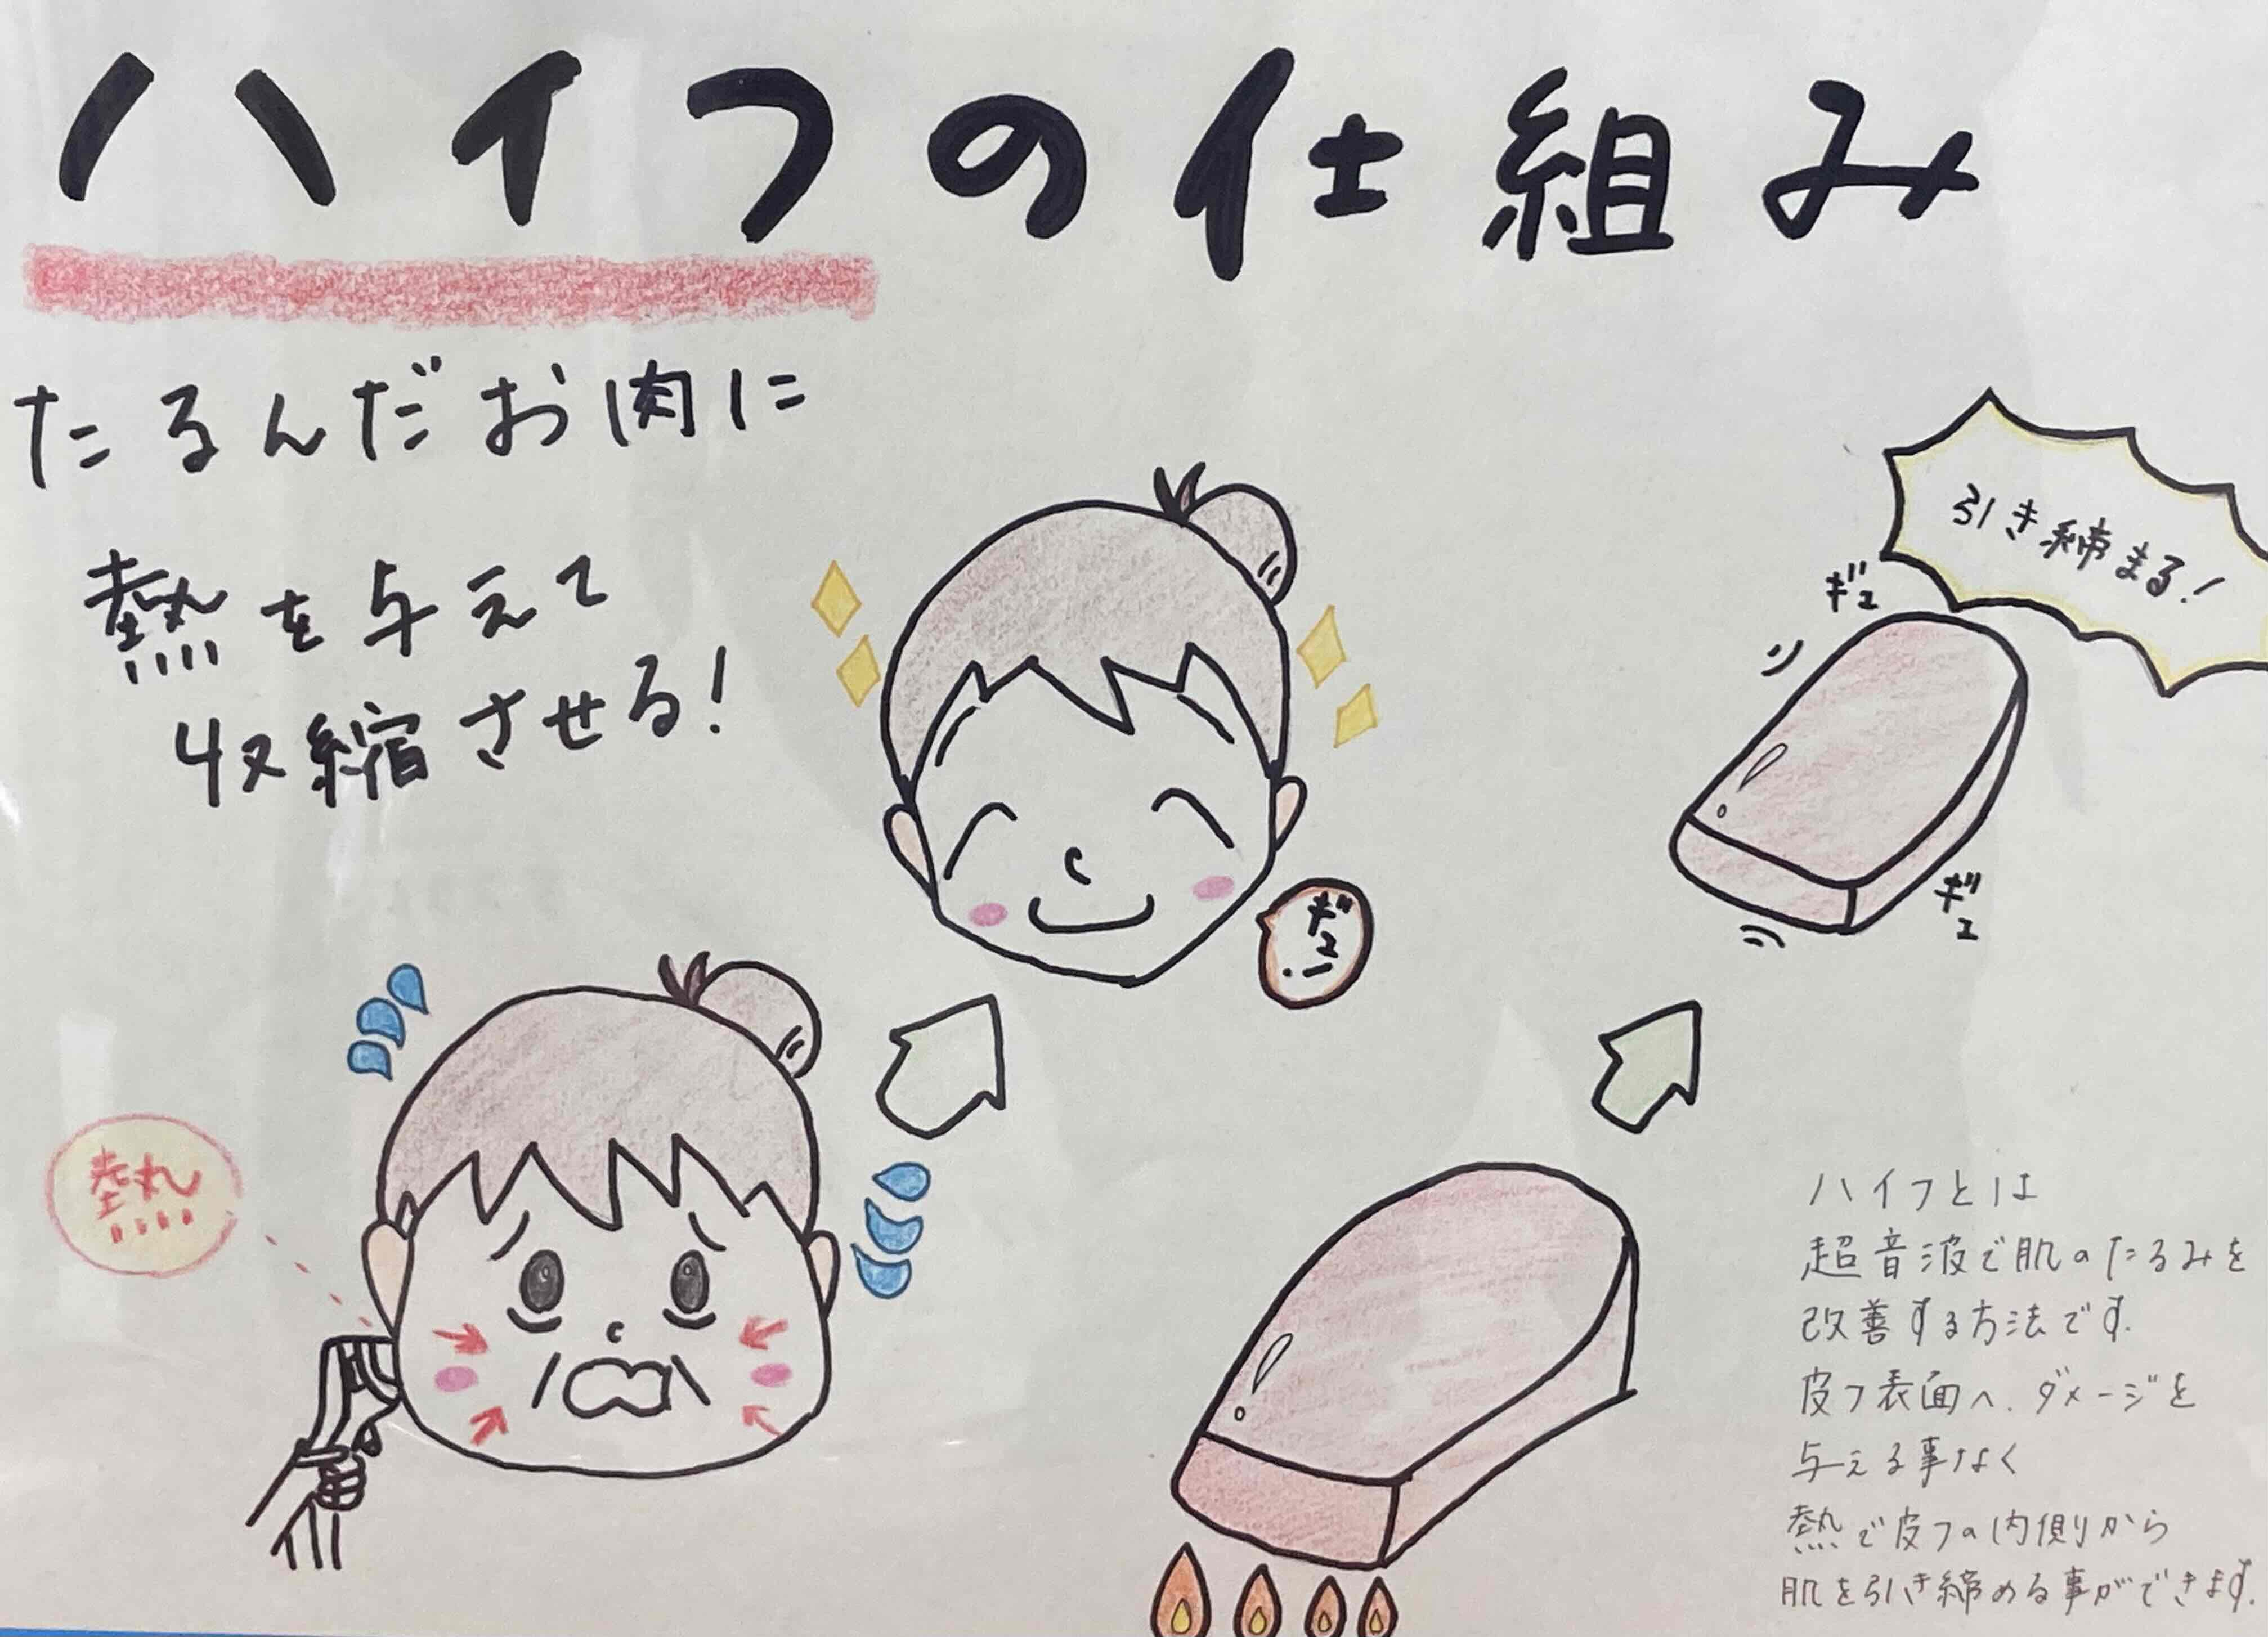 ハイフの仕組み
たるんだお肉に
熱を与えて
収縮させる!
引き締まる!
ギュ
ギュ
ギュー
熱
ハイフとは
超音波で肌のたるみを
改善する方法です.
皮フ表面へ、ダメージを
与える事なく
熱で皮フの内側から
肌を引き締める事ができます.